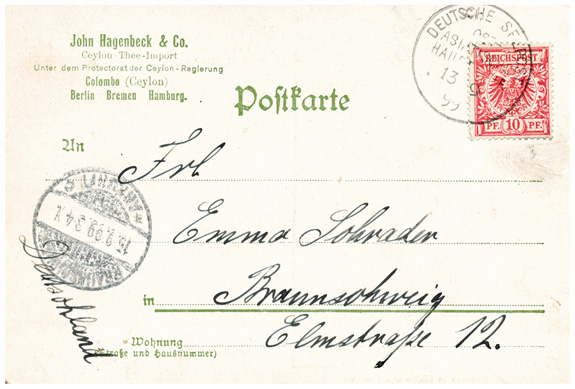 John Hagenbeck & Co.
Ceylon-Thee-Import
Unter dem Protectorat der Ceylon-Regierung
Colombo (Ceylon)
Berlin Bremen Hamburg.
Postkarte
DEUTSCHE
13
99
REICHSPOST
PF. 10 PF.
An
Frl
Emma Schrader
in Braunschweig
Elmstraße 12.
Wohnung
(Straße und Hausnummer)
Deutschland
15.9.99.3-4.N